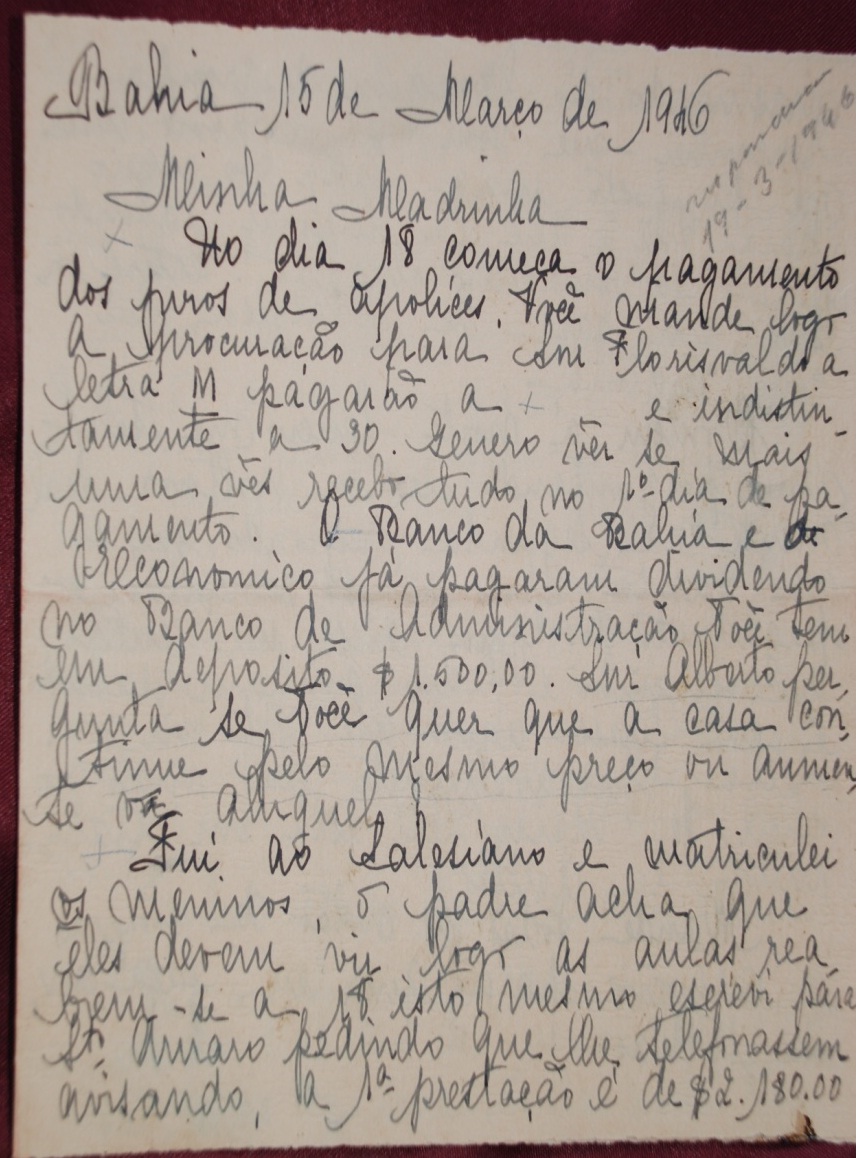 Bahia 15 de Março de 1946
19-3-1946
Minha Madrinha
No dia 18 começa o pagamento
dos juros de apolices. Você mande logo
a procuração para Snr Florisvaldo a
letra M pagarão a + e indistin-
tamente a 30. Genero vêr se mais
uma vês recebo tudo no 1º dia de pa-
gamento. O Banco da Bahia e
Economico já pagaram dividendo
no Banco de Administração Você tem
em deposito $ 1.500,00. Snr Alberto per-
gunta se Você quer que a casa con-
tinue pelo mesmo preço ou aumen-
te o aluguel
Fui ao Salesiano e matriculei
os meninos, o padre acha que
êles devem vir logo as aulas rea-
brem-se a 18 isto mesmo escrevi para
Stº Amaro pedindo que lhe telefonassem
avisando, a 1ª prestação é de $2.180.00